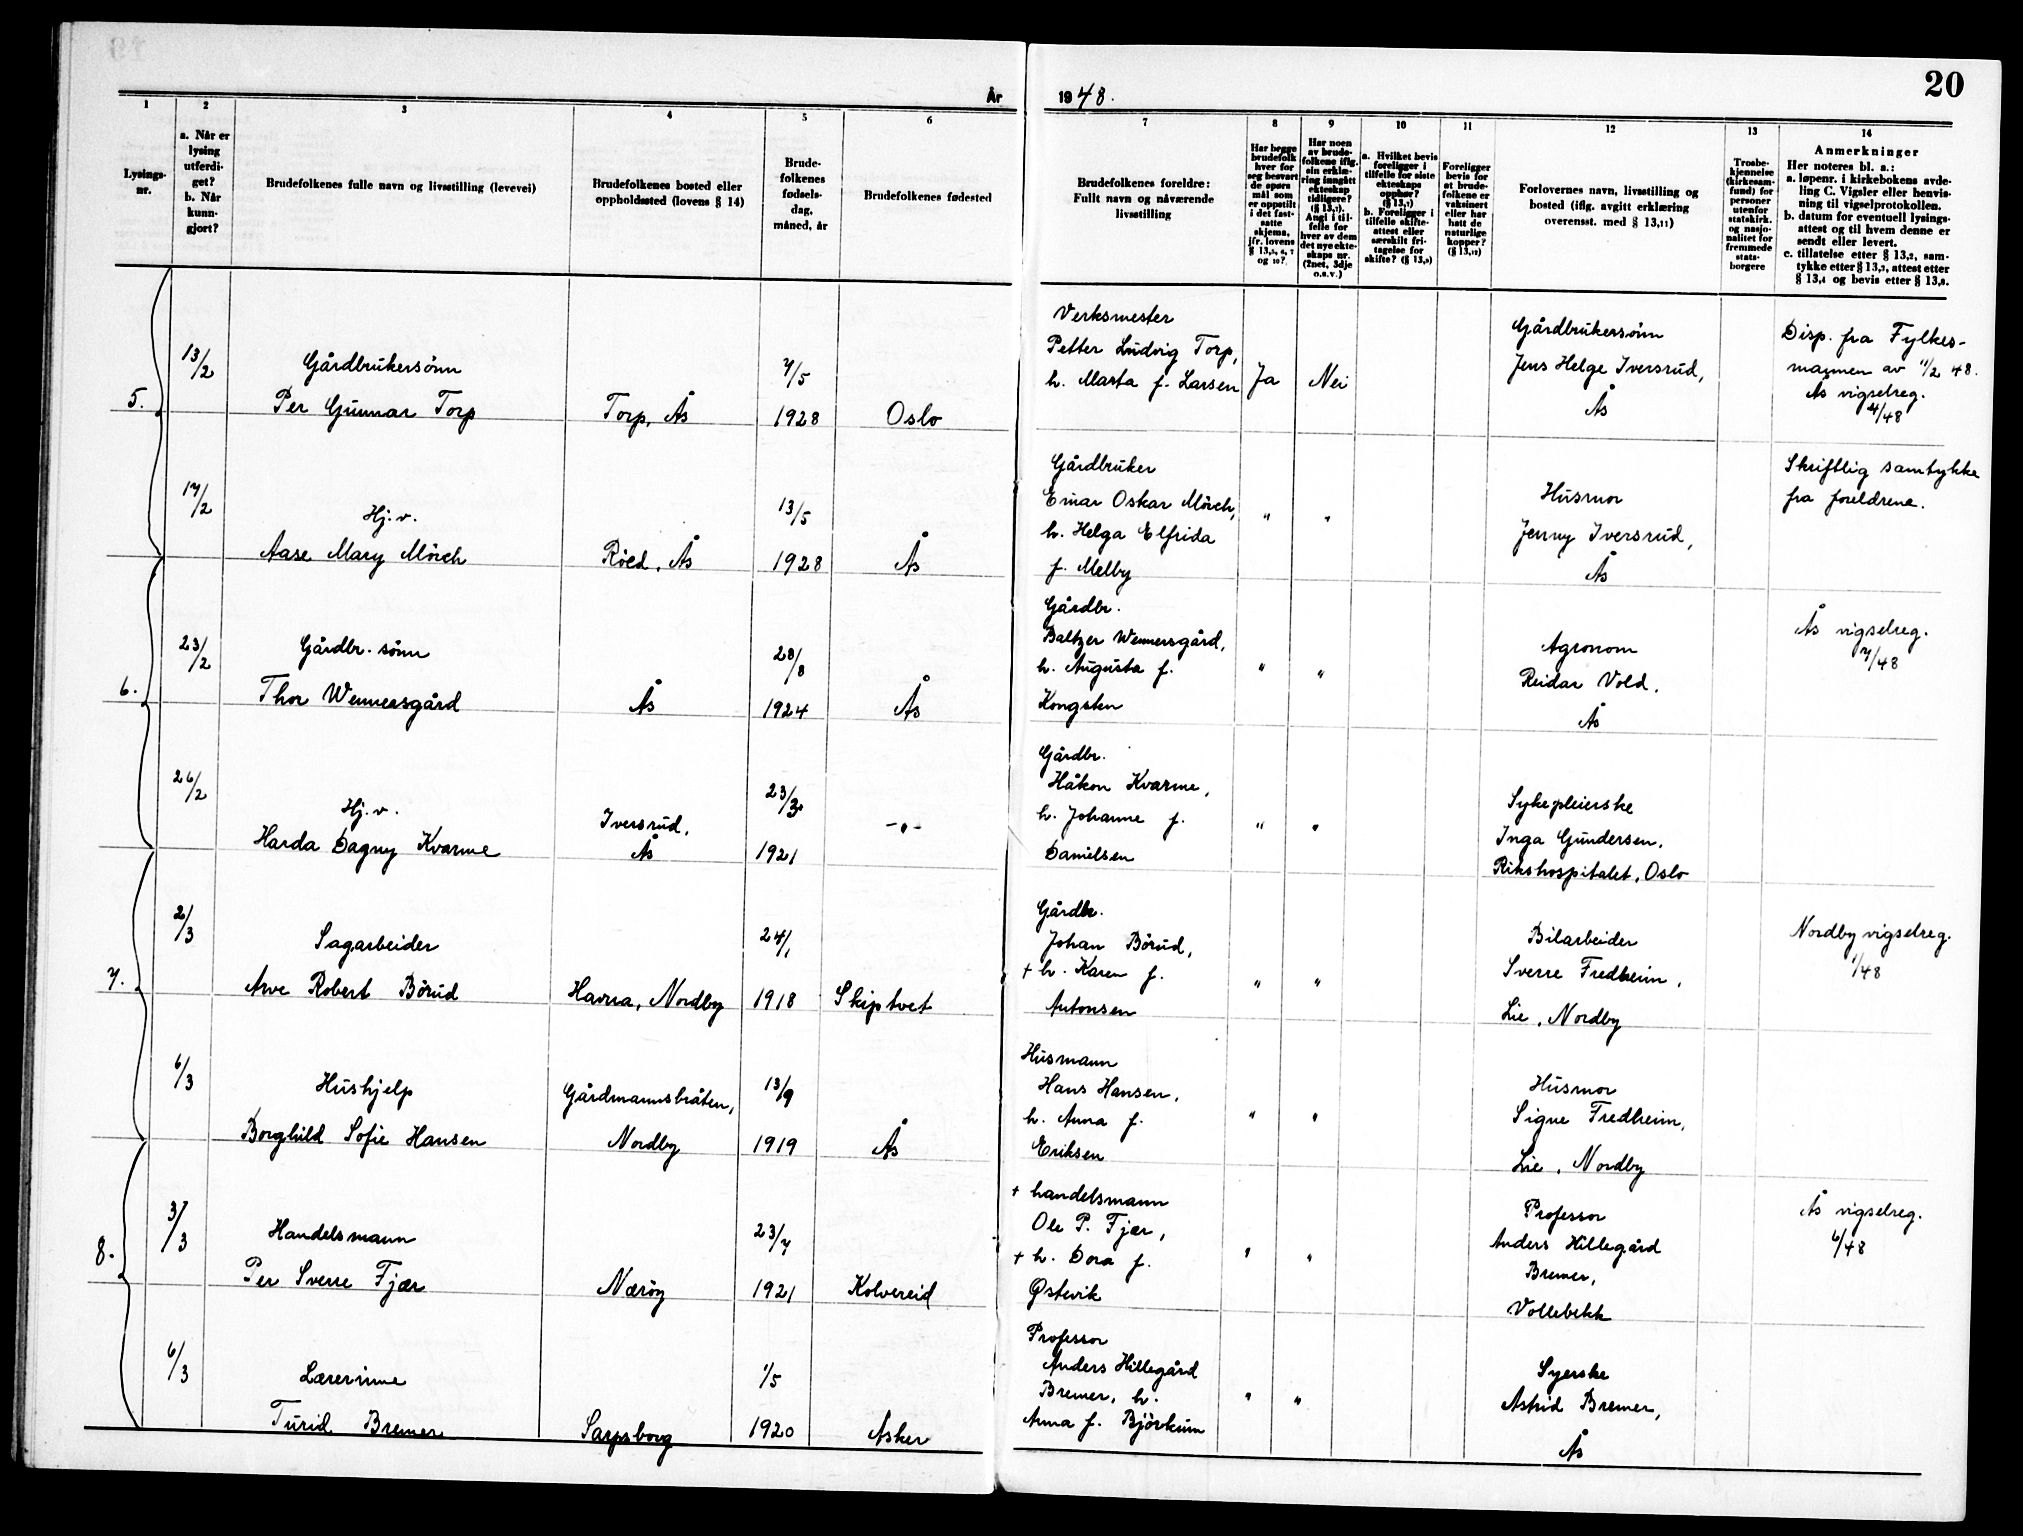 20
År 1948.
1
2
3
4
5
6
7
8
9
10
11
12
13
14
Lysings-
nr.
a. Når er
lysing
utferdi-
get?
b. Når
kunn-
gjort?
Brudefolkenes fulle navn og livsstilling (levevei)
Brudefolkenes bosted eller
oppholdssted (lovens § 14)
Brude-
folkenes
fødsels-
dag,
måned, år
Brudefolkenes fødested
Brudefolkenes foreldre:
Fullt navn og nåværende
livsstilling
Har begge
brudefolk
hver for
seg besvart
de spørs
mål som
er oppstilt
i det fast-
satte
skjema,
jfr. lovens
§ 13,5, 6, 7
og 10?
Har noen
av brude-
folkene iflg.
sin erklæ-
ring inngått
ekteskap
tidligere?
(§ 13,7).
Angi i til-
felle for
hver av dem
det nye ekte-
skaps nr.
(2net, 3dje
o.s.v.)
a. Hvilket bevis
foreligger i
tilfelle for siste
ekteskaps
opphør?
(§ 13,7)
b. Foreligger i
tilfelle skifte-
attest eller
særskilt fri-
tagelse for
skifte? (§ 13,9)
Foreligger
bevis for
at brude-
folkene er
vaksinert
eller har
hatt de
naturlige
kopper?
(§ 13,12)
Forlovernes navn, livsstilling og
bosted (iflg. avgitt erklæring
overensst. med § 13,11)
Trosbe-
kjennelse
(kirkesam-
fund) for
personer
utenfor
statskirk.
og nasjo-
nalitet for
fremmede
stats-
borgere
Anmerkninger
Her noteres bl. a.:
a. løpenr. i kirkebokens avde-
ling C. Vigsler eller henvis-
ning til vigselprotokollen.
b. datum for eventuell lysings-
attest og til hvem denne er
sendt eller levert.
c. tillatelse etter § 13,2, sam-
tykke etter § 13,3, attest etter
§ 13,4 og bevis etter § 13,8.
5.
13/2
Gårdbrukersönn
Per Gunnar Torp
Torp, Ås
7/5
1928
Oslo
Verksmester
Petter Ludvig Torp,
h. Marta f. Larsen
Ja
Nei
Gårdbrukersönn
Jens Helge Iversrud,
Ås
Disp. fra Fylkes-
mannen av 11/2 48.
Ås vigselreg.
4/48
17/2
Hj.v.
Aase Mary Mörch
Röed, Ås
13/5
1928
Ås
Gårdbruker
Einar Oskar Mörch,
h. Helga Elfrida
f. Melby
"
"
Husmor
Jenny Iversrud,
Ås
Skriftlig samtykke
fra foreldrene.
6.
23/2
Gårdbr. sönn
Thor Wennersgård
Ås
28/8
1924
Ås
Gårdbr.
Baltzer Wennersgård,
h. Augusta f.
Kongsten
"
"
Agronom
Reidar Vold.
Ås
Ås vigselreg.
7/48
26/2
Hj.v.
Harda Dagny Kvarme
Iversrud,
Ås
23/3
1921
-"-
Gårdbr.
Håkon Kvarme,
h. Johanne f.
Danielsen
"
"
Sykepleierske
Inga Gundersen,
Rikshospitalet, Oslo
7.
2/3
Sagarbeider
Arve Robert Börud
Havra, Nordby
24/1
1918
Skiptvet
Gårdbr.
Johan Börud,
+ h. Karen f.
Antonsen
"
"
Bilarbeider
Sverre Fredheim,
Lie, Nordby
Nordby vigselreg.
1/48
6/3
Hushjelp
Borghild Sofie Hansen
Gårdmannsbråten,
Nordby
13/9
1919
Ås
Husmann
Hans Hansen,
h. Anna f.
Eriksen
"
"
Husmor
Signe Fredheim,
Lie, Nordby
8.
3/3
Handelsmann
Per Sverre Fjær
Næröy
23/7
1921
Kolvereid
+ handelsmann
Ole P. Fjær,
+ h. Dora f.
Østevik
"
"
Professor
Anders Hillegård
Bremer,
Vollebekk
Ås vigselreg.
6/48
6/3
Lærerinne
Turid Bremer
Sarpsborg
1/5
1920
Asker
Professor
Anders Hillegård
Bremer, h.
Anna f. Björkum
"
"
Syerske
Astrid Bremer,
Ås